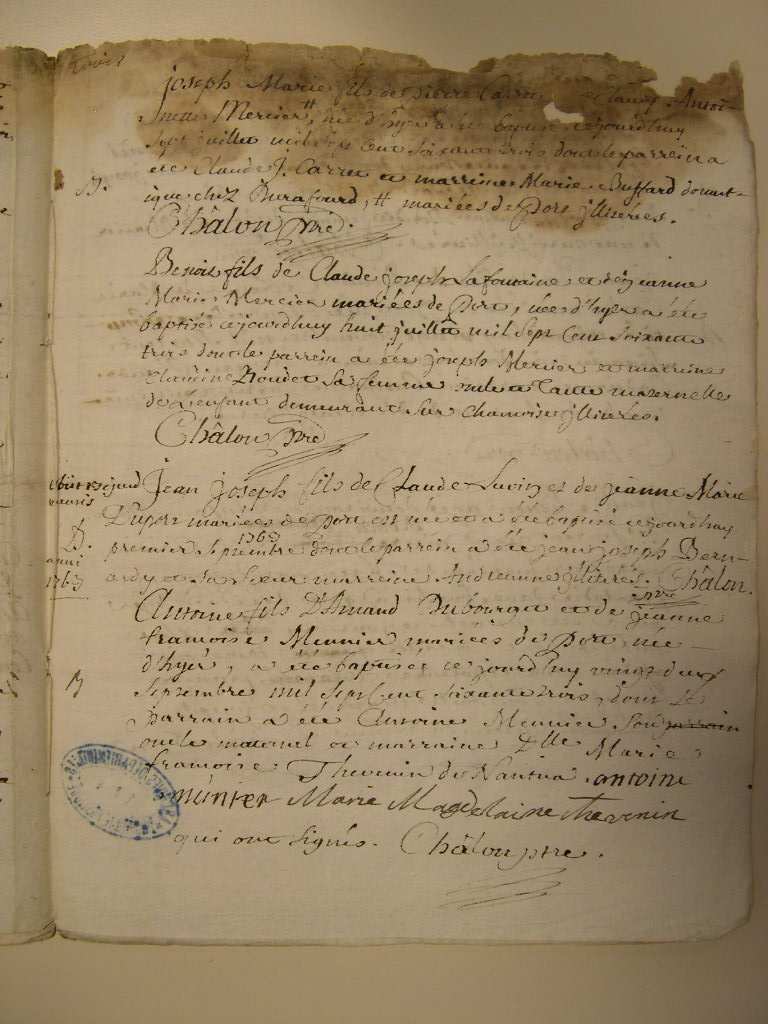 joseph Marie fils de pierre Carra et Claudy Antoi-
nette Mercier # née d'hyer a été baptisé cejourdhuy
sept juillet mil sept cent soixante trois dont le parrein a
été Claude J. Carret et marreine Marie Buffard domest-
ique chez Durafourd, # mariées de Port jlliterés.
B.
Châlon Ptre.
Benoit fils de Claude joseph Lafontaine et de jeanne
Marie Mercier mariées de Port, née d'hyer a été
baptisé cejourdhuy huit juillet mil sept cent soixante
trois dont le parrein a été joseph Mercier et marreine
Claudine Boudet sa femme oncle et tante maternelle
de Lenfant demeurant sur chamoise jlliterés.
Châlon Ptre
Jean joseph fils de Claude Savin et de jeanne Marie
Dupon mariées de port est née et a été baptisé cejourdhuy
1763
premier septembre dont le parrein a été jean joseph Bern-
ardy et sa soeur marreine Andreanne jlliterés. Châlon
ptre
B.
anni
1763
Antoine fils D'Amand Dubourget et de jeanne
francoise Meunier mariées de port née
d'hyer, a été baptisée ce jourdhuy vingt deux
B
septembre mil sept cent soixante trois, dont le
parrain a été Antoine Meunier son parrain
oncle maternel et marraine Dlle Marie
francoise Thevenin de Nantua. antoine
munier Marie Magdelaine thevenin
qui ont signés. Châlon ptre.